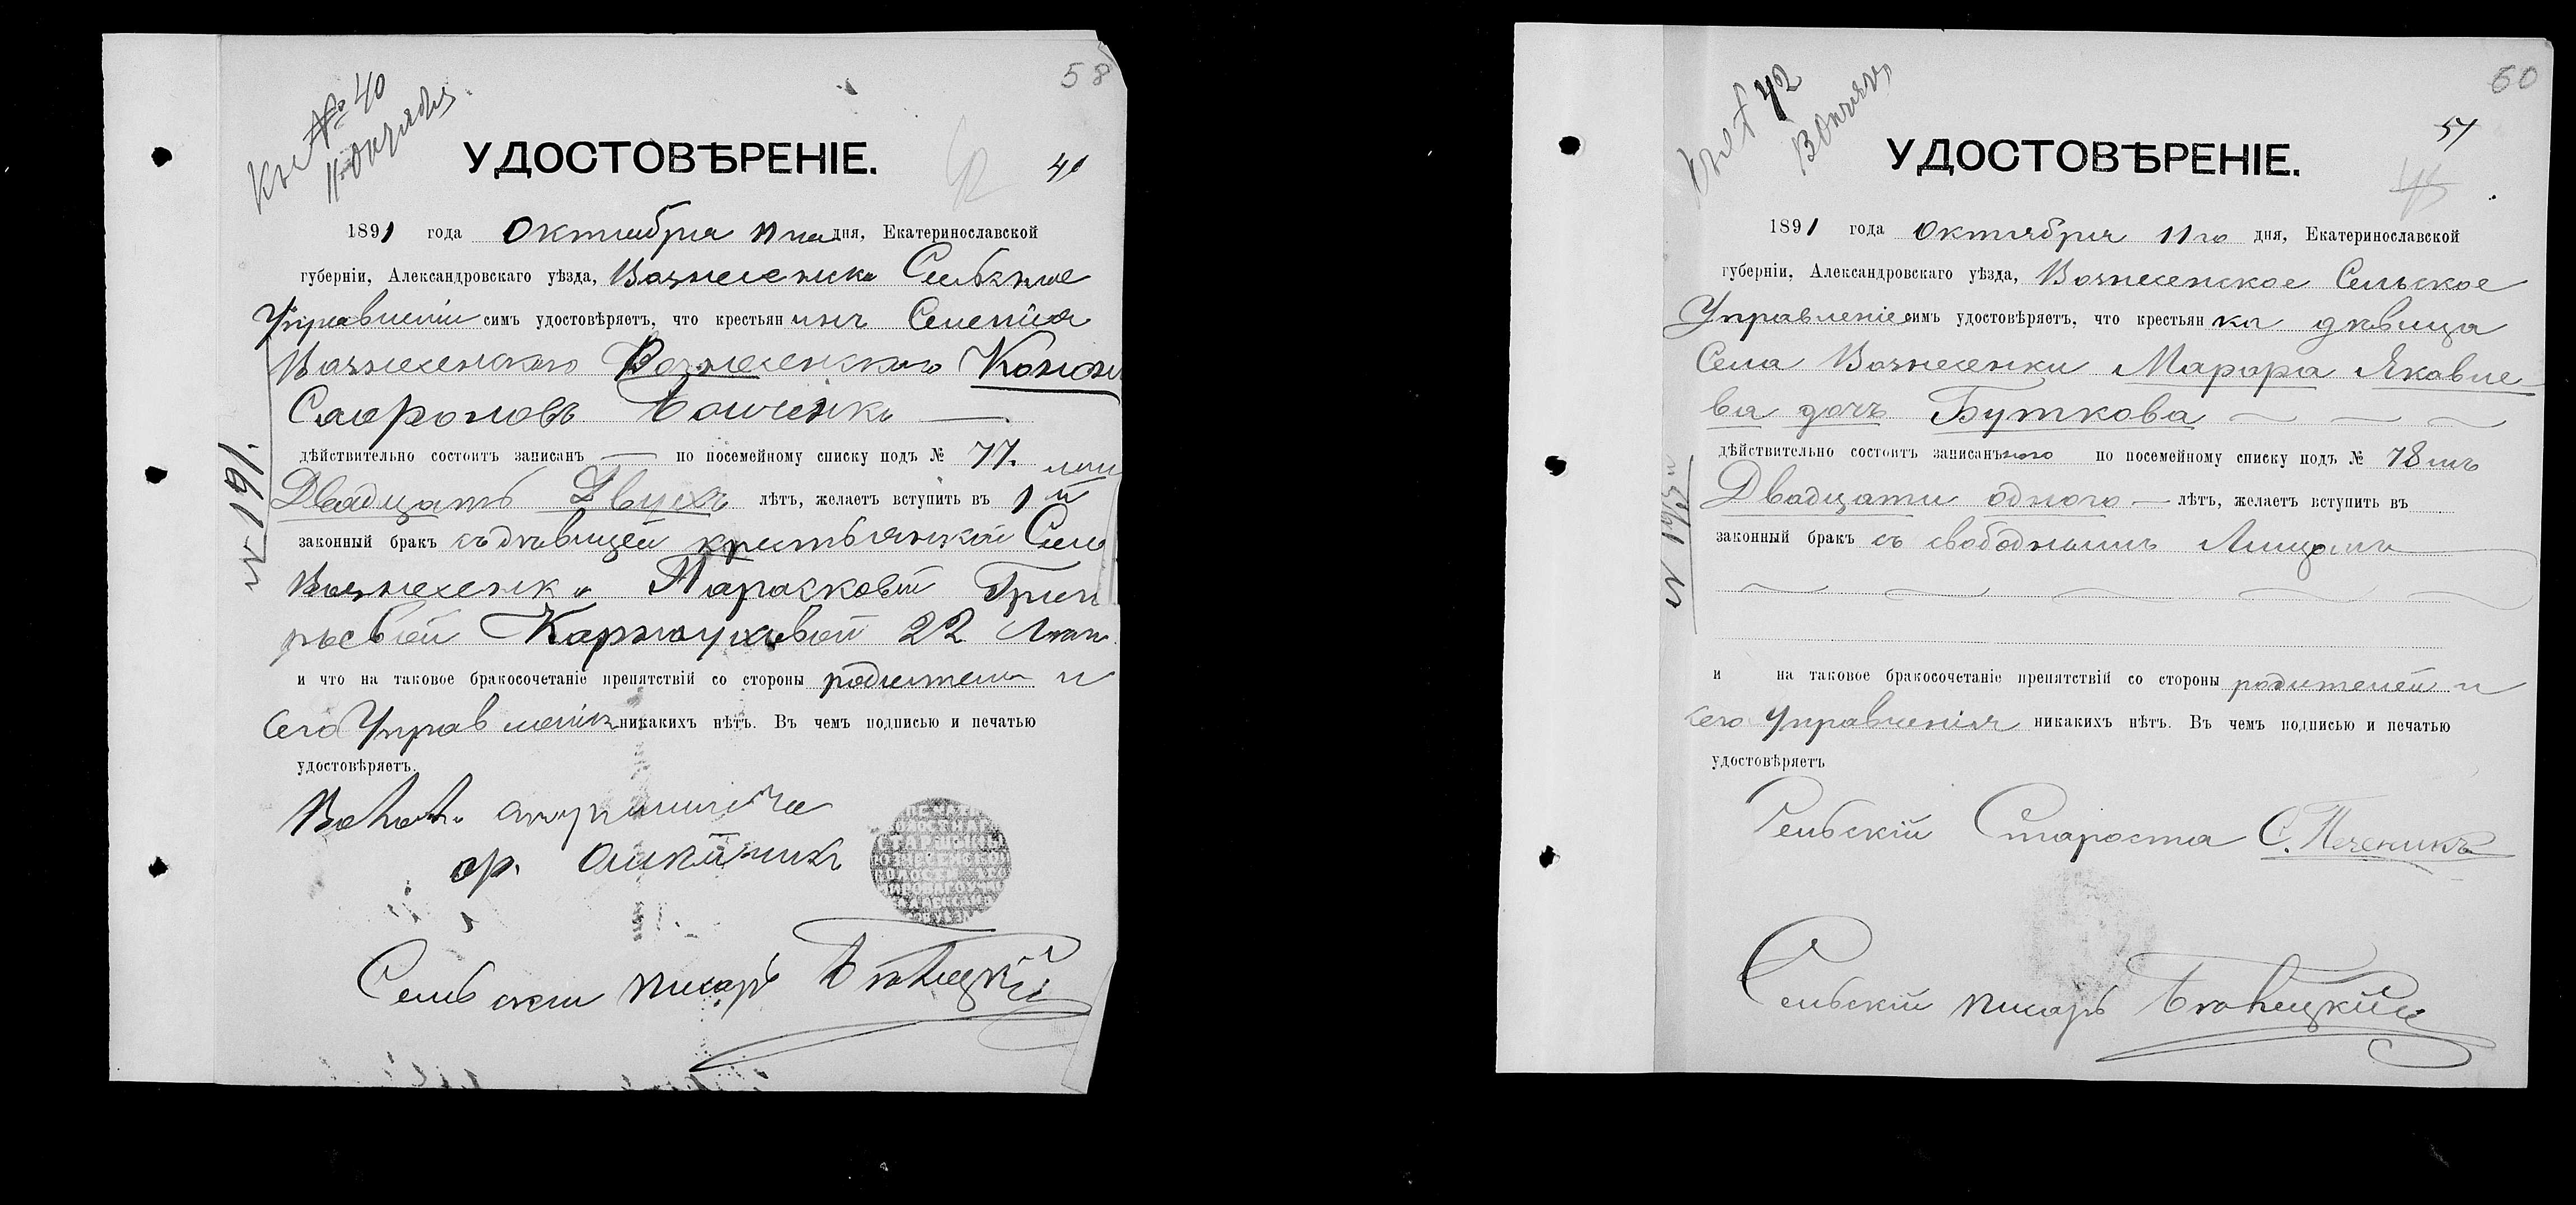 58
Къ № 40
УДОСТОВѢРЕНІЕ.
41
1891 года Октября 11 дня, Екатеринославской
губерніи, Александровскаго уѣзда, Вознесенское Сельское
Управленіе симъ удостовѣряетъ, что крестьянинъ Селенія
Вознесенского Вознесенского Конон
Сафроновъ Бойченко
дѣйствительно состоитъ записанъ — по посемейному списку подъ № 77.
Двадцать Двухъ лѣтъ, желаетъ вступить въ 1й
законный бракъ съ дѣвицей крестьянкой Села
Вознесенки Парасковій Григо
рьевой Карнауховой 22 лѣтъ
и что на таковое бракосочетаніе препятствій со стороны родителей и
сего Управленія никакихъ нѣтъ. Въ чемъ подписью и печатью
удостовѣряетъ.
Сельскій писарь
№ 191.
60
42
57
УДОСТОВѢРЕНІЕ.
1891 года Октября 11го дня, Екатеринославской
губерніи, Александровскаго уѣзда, Вознесенское Сельское
Управленіе симъ удостовѣряетъ, что крестьянка дѣвица
Села Вознесенки Марфа Яковле-
ва дочь Буткова
дѣйствительно состоитъ записанъною по посемейному списку подъ № 78мъ
Двадцати одного — лѣтъ, желаетъ вступить въ
законный бракъ съ свободнымъ Лицомъ
и на таковое бракосочетаніе препятствій со стороны родителей и
сего Управленія никакихъ нѣтъ. Въ чемъ подписью и печатью
удостовѣряетъ
Сельскій Староста С. Печеникъ
Сельскій писарь